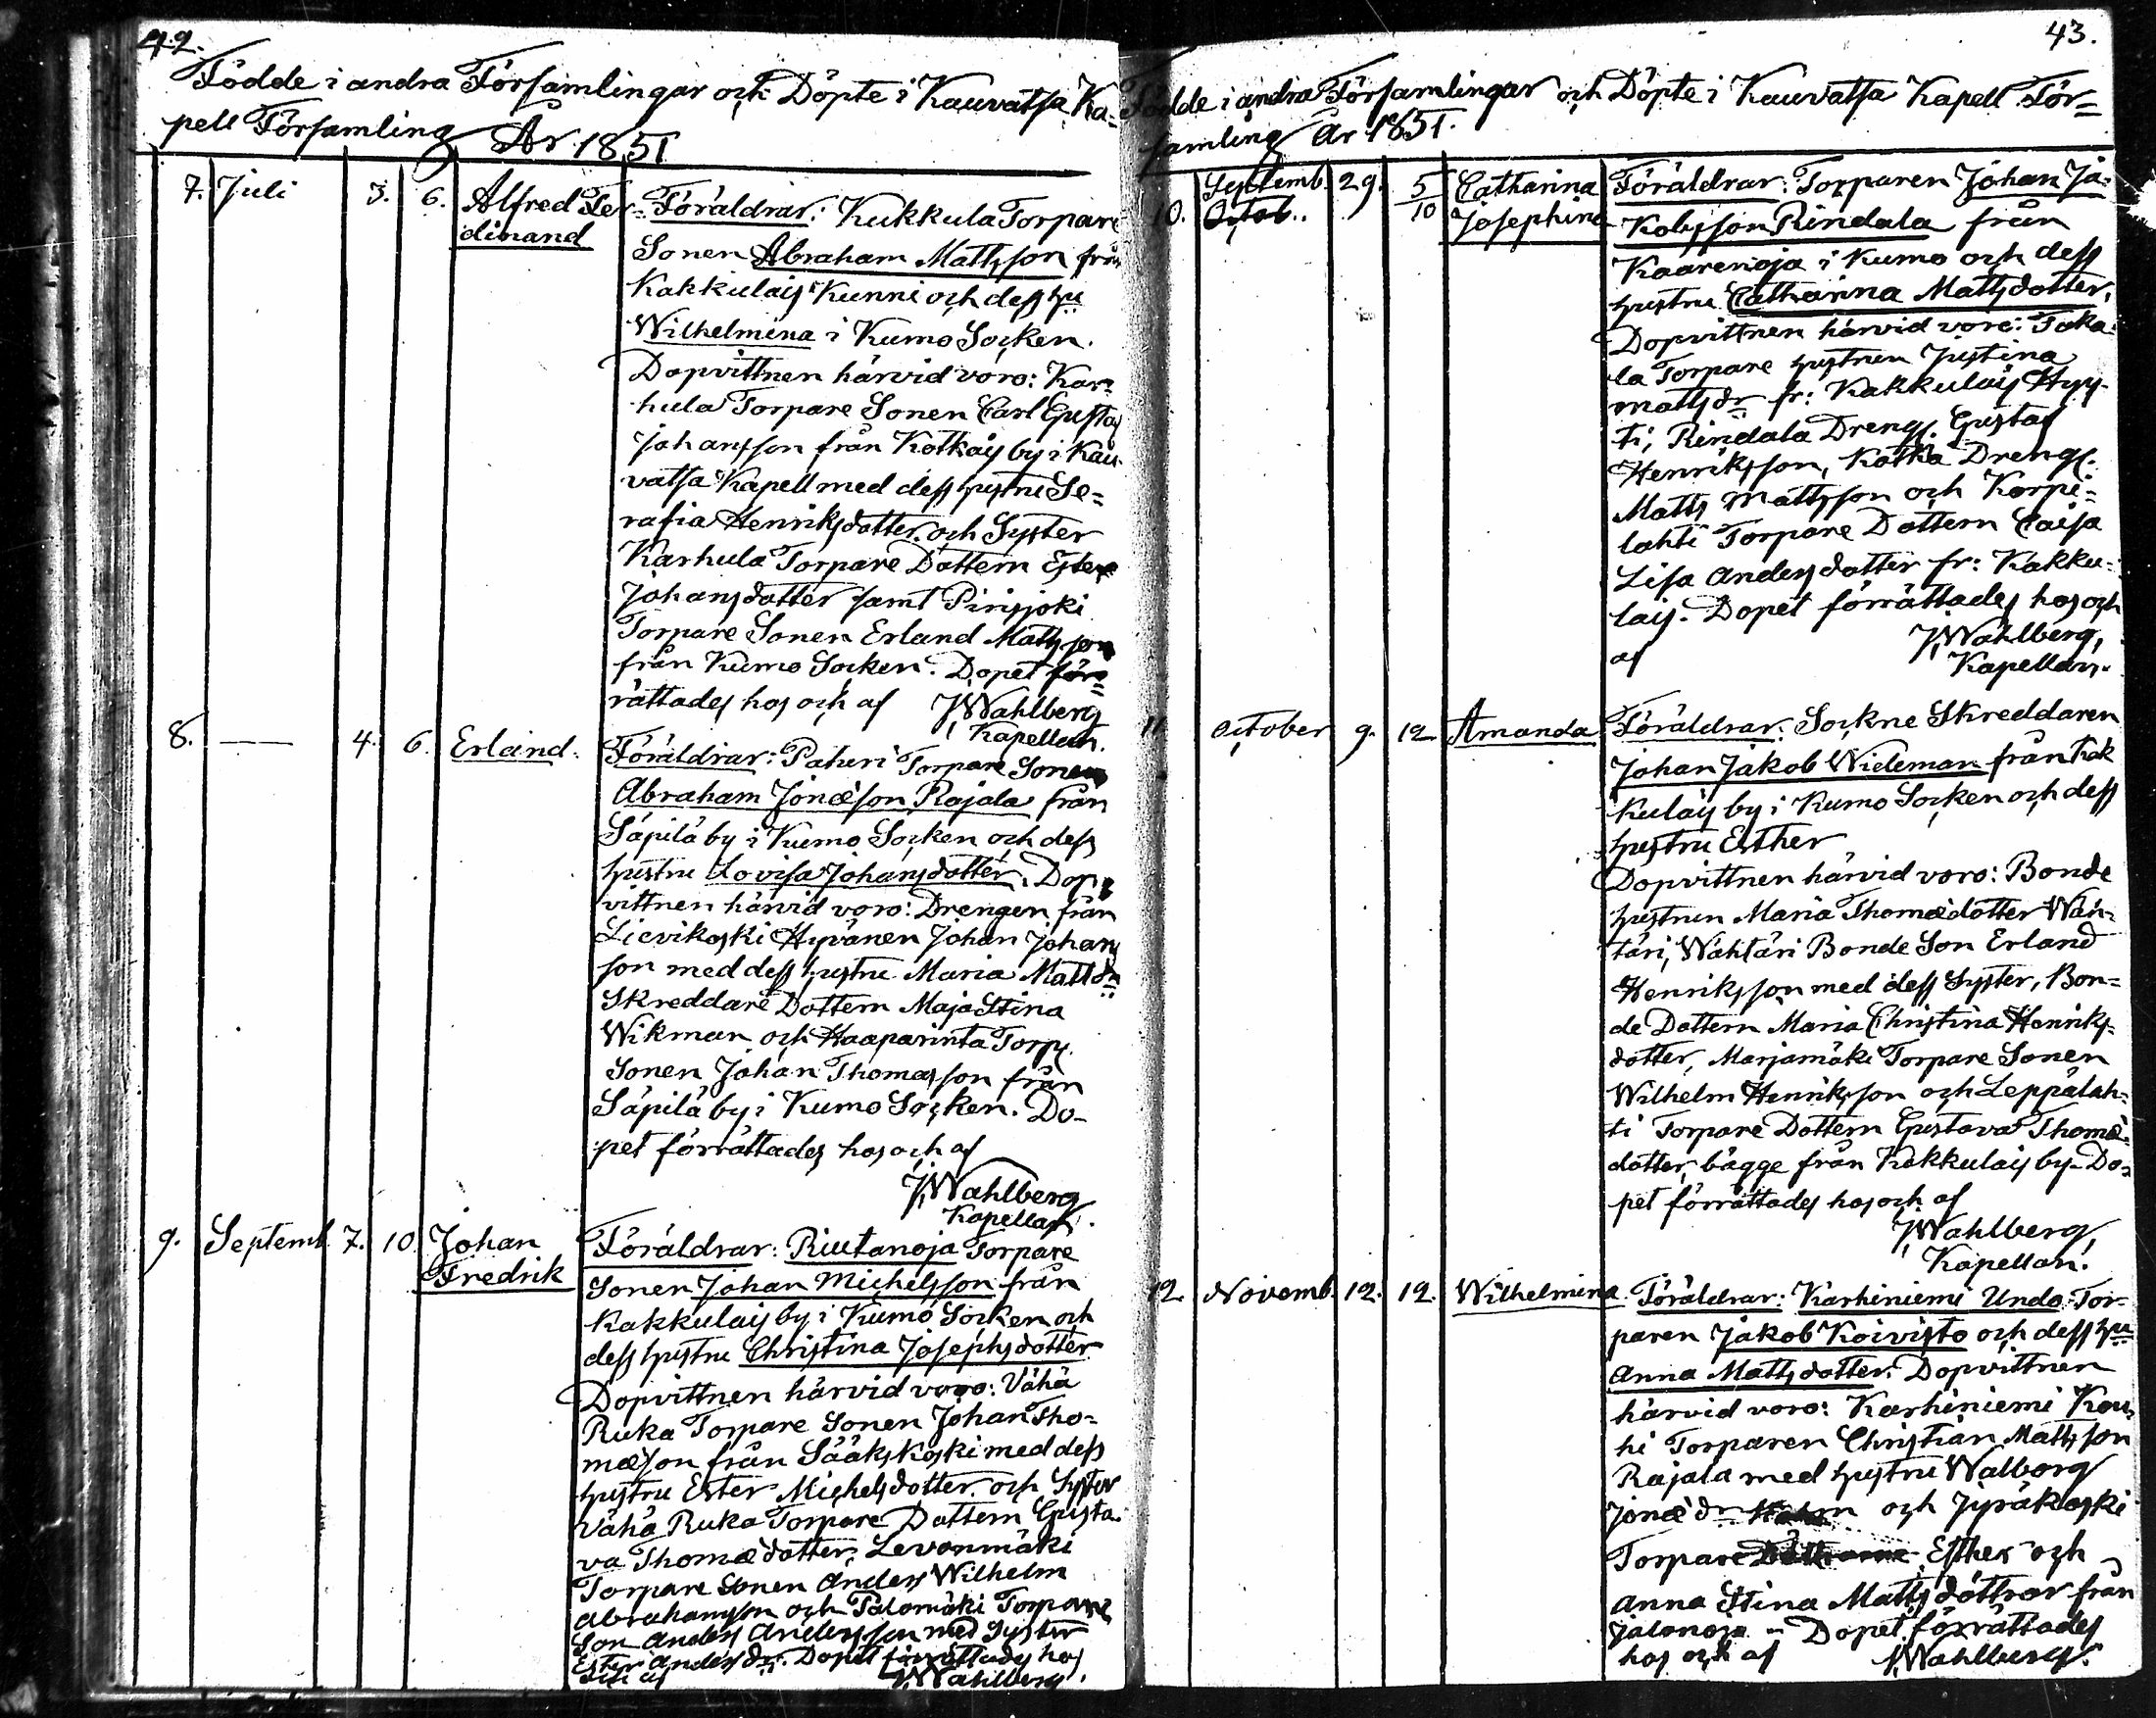 42.
Födde i andra Församlingar och Döpte i Kauvatsa Ka=
pell Församling År 1851
7. Juli 3. 6. Alfred Fer=
dinand
Föräldrar: Kukkula Torpare
Sonen Abraham Mattsson från
Kakkulais Kunni och dess hu
Wilhelmina i Kumo Socken.
Dopvittnen härvid voro: Kar=
hula Torpare Sonen Carl Gustaf
Johansson från Kotkais by i Kau=
vatsa Kapell med dess hustru Se=
rafia Henriksdotter och Syster
Karhula Torpare Dottern Ester
Johansdotter samt Pirisjoki
Torpare Sonen Erland Mattsson
från Kumo Socken. Dopet för=
rättades hos och af JWahlberg
Kapellan.
8. — 4. 6. Erland.
Föräldrar: Pahuri Torpare Sonen
Abraham Jonæson Rajala från
Säpilä by i Kumo Socken och dess
hustru Lovisa Johansdotter. Dop=
vittnen härvid voro: Drengen från
Lievikoski Hyvänen Johan Johans
son med dess hustru Maria Mattsdr
Skreddare Dottern Maja Stina
Wikman och Haaparinta Torp.
Sonen Johan Thomasson från
Säpilä by i Kumo Socken. Do-
pet förrättades hos och af
JWahlberg
Kapellan.
9. Septemb. 7. 10. Johan
Fredrik
Föräldrar: Riutanoja Torpare
Sonen Johan Michelsson från
Kakkulais by i Kumo Socken och
dess hustru Christina Josephsdotter
Dopvittnen härvid voro: Vähä
Ruka Torpare Sonen Johan Tho=
mæson från Sääkskoski med dess
hustru Ester Michelsdotter och Syster
Vähä Ruka Torpare Dottern Gusta=
va Thomædotter, Levonmäki
Torpare Sonen Anders Wilhelm
Abrahamsson och Palomäki Torpare
Son Anders Andersson med Syster
Ester Andersdr. Dopet förrättades hos
och af JWahlberg.
43.
Födde i andra Församlingar och Döpte i Kauvatsa Kapell För=
samling År 1851.
10. Septemb. 29. 5/10 Catharina
Octob. Josephina
Föräldrar: Torparen Johan Ja=
kobsson Rindala från
Kaarenoja i Kumo och dess
hustru Catharina Mattsdotter,
Dopvittnen härvid voro: Taka=
la Torpare hustrun Justina
Mattsdr fr: Kakkulais Hyy=
ti, Rindala Dreng. Gustaf
Henriksson, Kotka Dreng.
Matts Mattsson och Korpi=
lahti Torpare Dottern Caisa
Lisa Andersdotter fr: Kakku=
lais. Dopet förrättades hos och
af JWahlberg,
Kapellan.
11 October 9. 12 Amanda
Föräldrar: Sockne Skreddaren
Johan Jakob Wideman från Kak
kulais by i Kumo Socken och dess
hustru Esther
Dopvittnen härvid voro: Bonde
hustrun Maria Thomædotter Wäh=
täri, Wähtäri Bonde Son Erland
Henriksson med dess Syster, Bon=
de Dottern Maria Christina Henriks=
dotter, Marjamäki Torpare Sonen
Wilhelm Henriksson och Leppälah=
ti Torpare Dottern Gustava Thomæ=
dotter, bägge från Kakkulais by. Do=
pet förrättades hos och af
JWahlberg,
Kapellan.
12. Novemb. 12. 12. Wilhelmina
Föräldrar: Karhiniemi Undo Tor=
paren Jakob Koivisto och dess hu
Anna Mattsdotter. Dopvittnen
härvid voro: Karhiniemi Kou=
hi Torparen Christian Mattsson
Rajala med hustru Walborg
Jonædr och Jyräkoski
Torpare Esther och
Anna Stina Mattsdöttrar från
Jalonoja – Dopet förrättades
hos och af JWahlberg.